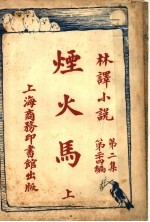 林譯小說
第二集
編
煙火馬
上
上海商務印書館出版